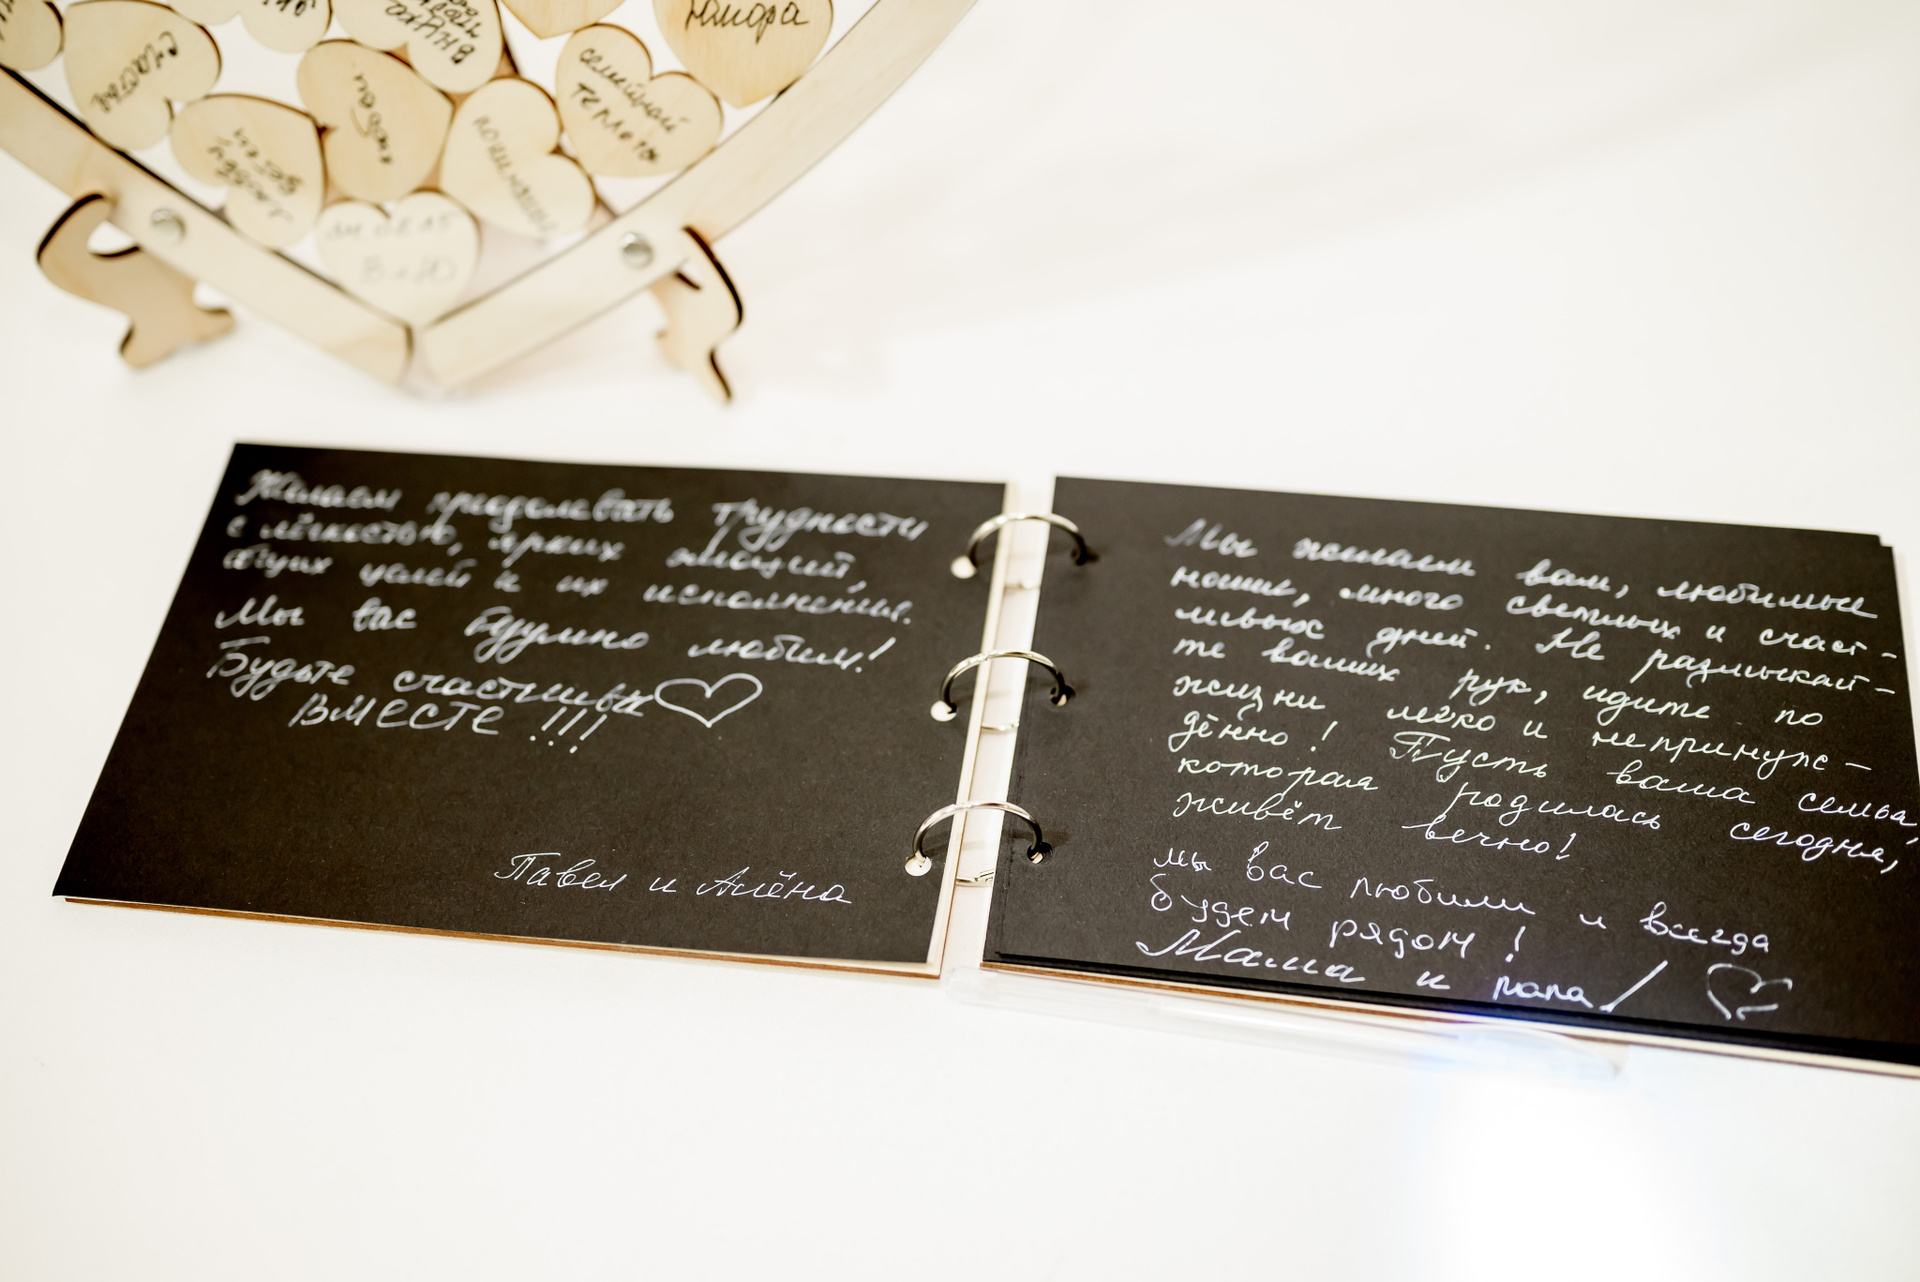 счастья
семейной
теплоты
юмора
Желаем преодолевать трудности
с лёгкостью, ярких эмоций,
общих целей и их исполнения.
Мы вас безумно любим!
Будьте счастливы
ВМЕСТЕ !!!
Павел и Алёна
Мы желаем вам, любимые
наши, много светлых и счаст-
ливых дней. Не размыкай-
те ваших рук, идите по
жизни легко и непринуж-
дённо! Пусть ваша семья,
которая родилась сегодня,
живёт вечно!
мы вас любим и всегда
будем рядом!
Мама и папа!